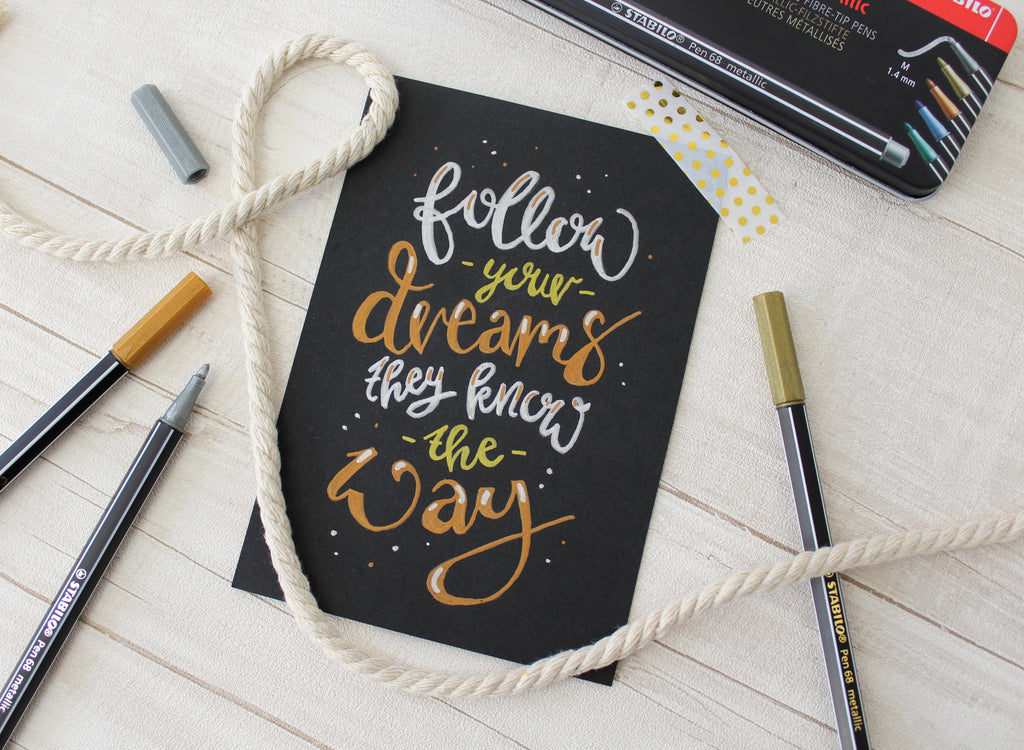 follow
- your -
dreams
they know
- the -
way
STABILO
lic
FIBRE-TIP PENS
LIC-FILZSTIFTE
EUTRES MÉTALLISÉS
STABILO® Pen 68 metallic
M
1.4 mm
STABILO® Pen 68 metallic
STABILO® Pen 68 metallic